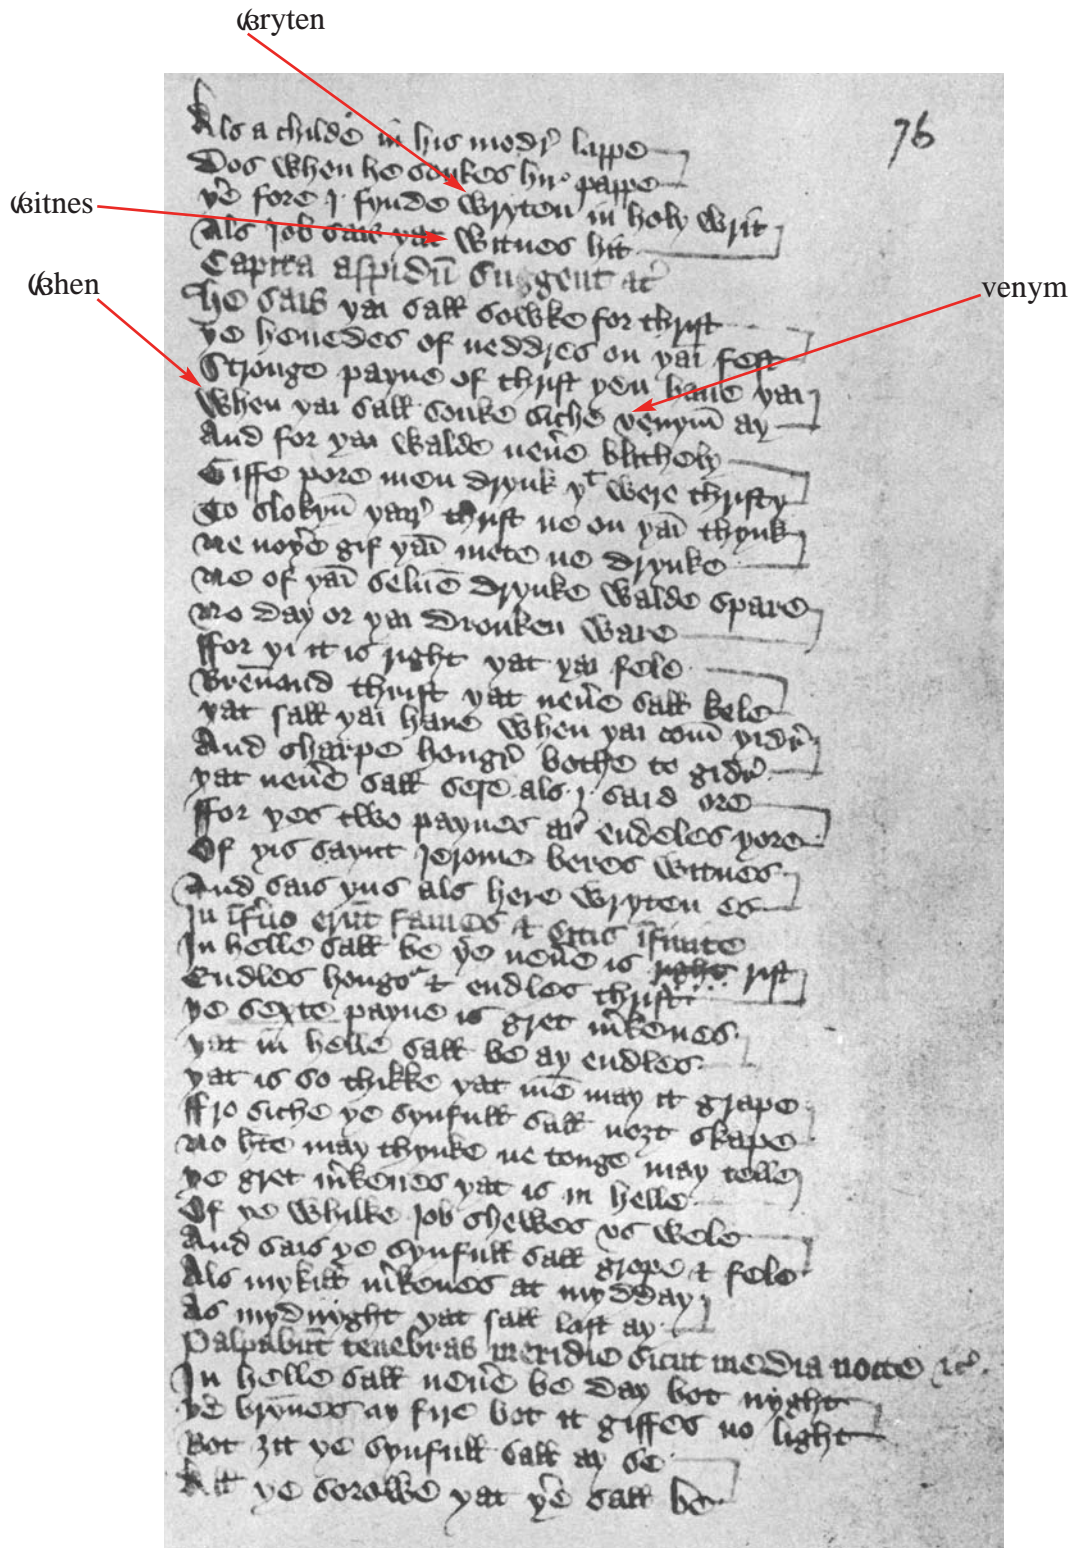 ꟃryten
ꟃitnes
ꟃhen
venym
76
Als a childe in his modr̉ lappe
Dos when he soukes hir pappe
yẻ fore I fynde wryten in holy writ
Als Job sais yat witnes hit
Capita aspidū suggent &c̉
he sais yai sall sowke for thrist
ye heuedes of neddres on yaī fest
Stronge payne of thrist yen haue yai
When yai sall souke siche venym̄ ay
And for yai walde neủe blithely
Giffe pore men drynk yᵗ were thristy
To slokyn̄ yair̉ thrist ne on yaī thynk
Ne noyẻ gif yaī mete ne drynke
Ne of yaī seluē drynke walde spare
No day or yai dronken ware
ffor yi it is right yat yai fele
Brēnand thrist yat neủe sall kele
yat sall yai haue when yai com̄ yidr̉
And sharpe hongr̉ bothe to gidr̉
yat neủe sall sese als I said ore
ffor yes two paynes ar̉ endeles yore
Of yis saynt Jerome beres witnes
And sais yus als here wryten es
In īfủo erūt fames & sitis īfinite
In helle sall be yẻ neủe is right rist
Endles hongr̉ & endles thrist
ye sexte payne is gret m̉kenes
yat in helle sall be ay endles
yat is so thikke yat mē may it grape
ffro siche ye synfull sall noȝt skape
No hẻte may thynke ne tonge may telle
ye gret m̉kenes yat is in helle
Of ye whilke Job shewes vs wele
And sais ye synfull sall grope & fele
Als mykill m̉kenes at mydday
As mydnyght yat sall last ay
Palpabūt tenebras meridie sicut media nocte &c̉
In helle sall neủe be day bot nyght
yẻ brȳnes ay fire bot it giffes no light
Bot ȝit ye synfull sall ay se
All ye sorowe yat yẻ sall be